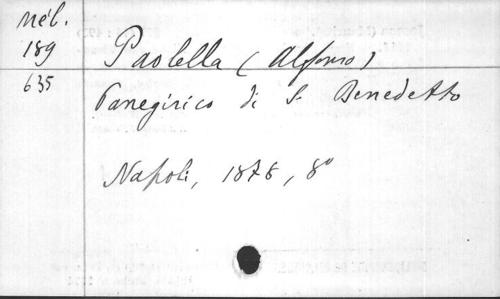 Mél.
189
635
Paolella (Alfonso)
Panegirico di S. Benedetto
Napoli, 1878, 8°